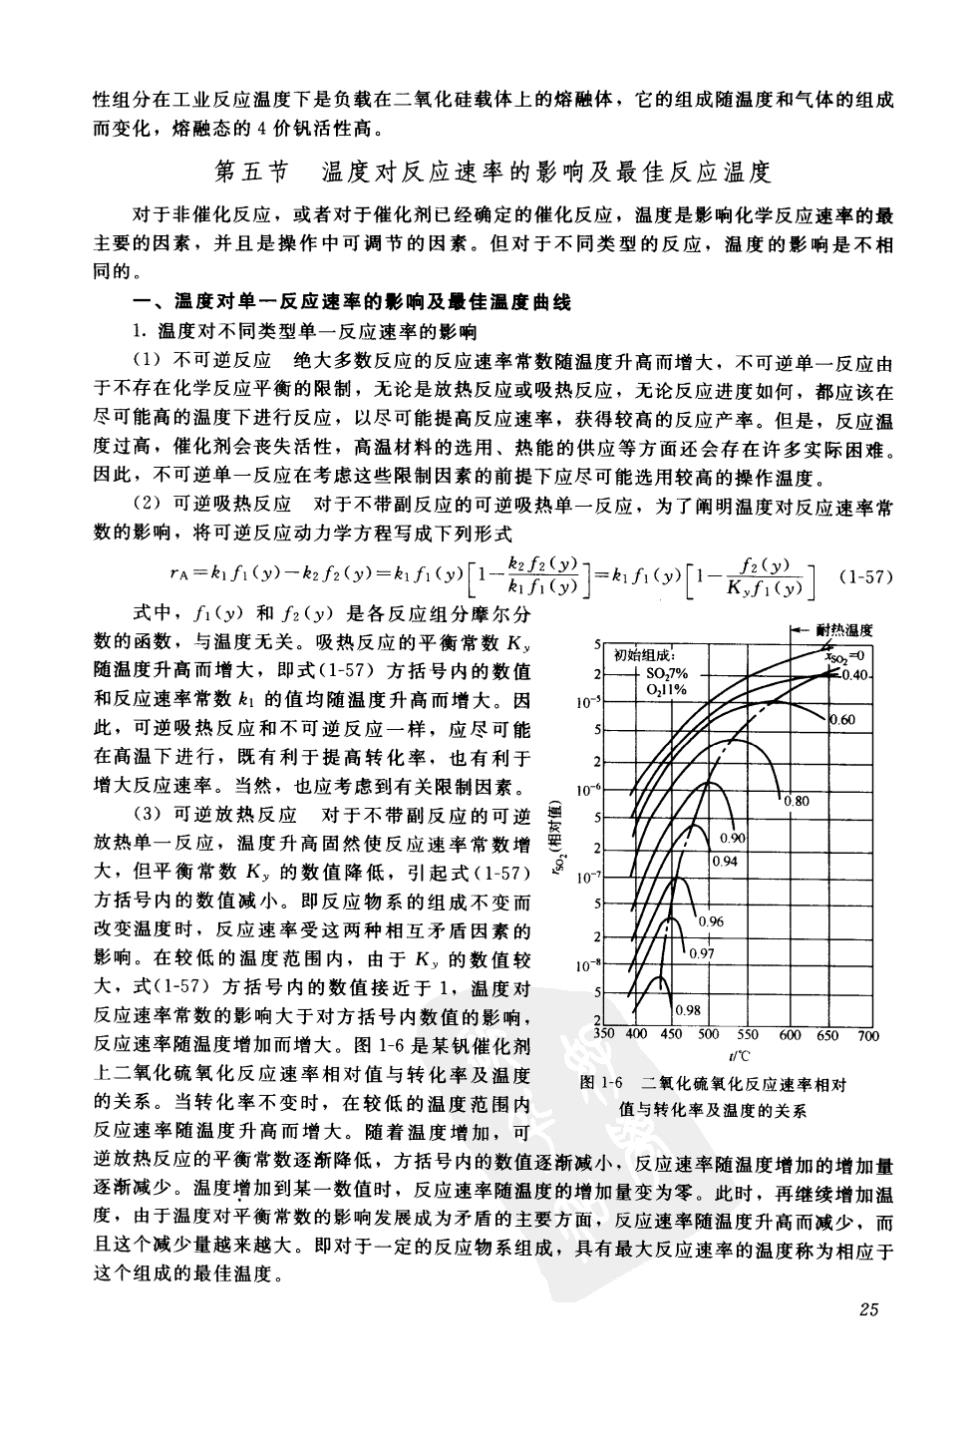 性组分在工业反应温度下是负载在二氧化硅载体上的熔融体，它的组成随温度和气体的组成
而变化，熔融态的 4 价钒活性高。
第五节　温度对反应速率的影响及最佳反应温度
对于非催化反应，或者对于催化剂已经确定的催化反应，温度是影响化学反应速率的最
主要的因素，并且是操作中可调节的因素。但对于不同类型的反应，温度的影响是不相
同的。
一、温度对单一反应速率的影响及最佳温度曲线
1. 温度对不同类型单一反应速率的影响
（1）不可逆反应　绝大多数反应的反应速率常数随温度升高而增大，不可逆单一反应由
于不存在化学反应平衡的限制，无论是放热反应或吸热反应，无论反应进度如何，都应该在
尽可能高的温度下进行反应，以尽可能提高反应速率，获得较高的反应产率。但是，反应温
度过高，催化剂会丧失活性，高温材料的选用、热能的供应等方面还会存在许多实际困难。
因此，不可逆单一反应在考虑这些限制因素的前提下应尽可能选用较高的操作温度。
（2）可逆吸热反应　对于不带副反应的可逆吸热单一反应，为了阐明温度对反应速率常
数的影响，将可逆反应动力学方程写成下列形式
r_A=k₁f₁(y)−k₂f₂(y)=k₁f₁(y)[1−k₂f₂(y)/k₁f₁(y)]=k₁f₁(y)[1−f₂(y)/K_yf₁(y)]　(1-57)
式中，f₁(y) 和 f₂(y) 是各反应组分摩尔分
数的函数，与温度无关。吸热反应的平衡常数 K_y
随温度升高而增大，即式(1-57) 方括号内的数值
和反应速率常数 k₁ 的值均随温度升高而增大。因
此，可逆吸热反应和不可逆反应一样，应尽可能
在高温下进行，既有利于提高转化率，也有利于
增大反应速率。当然，也应考虑到有关限制因素。
（3）可逆放热反应　对于不带副反应的可逆
放热单一反应，温度升高固然使反应速率常数增
大，但平衡常数 K_y 的数值降低，引起式(1-57)
方括号内的数值减小。即反应物系的组成不变而
改变温度时，反应速率受这两种相互矛盾因素的
影响。在较低的温度范围内，由于 K_y 的数值较
大，式(1-57) 方括号内的数值接近于 1，温度对
反应速率常数的影响大于对方括号内数值的影响，
反应速率随温度增加而增大。图 1-6 是某钒催化剂
上二氧化硫氧化反应速率相对值与转化率及温度
的关系。当转化率不变时，在较低的温度范围内
反应速率随温度升高而增大。随着温度增加，可
逆放热反应的平衡常数逐渐降低，方括号内的数值逐渐减小，反应速率随温度增加的增加量
逐渐减少。温度增加到某一数值时，反应速率随温度的增加量变为零。此时，再继续增加温
度，由于温度对平衡常数的影响发展成为矛盾的主要方面，反应速率随温度升高而减少，而
且这个减少量越来越大。即对于一定的反应物系组成，具有最大反应速率的温度称为相应于
这个组成的最佳温度。
耐热温度
初始组成：
SO₂7%
O₂11%
x_SO₂=0
0.40
0.60
0.80
0.90
0.94
0.96
0.97
0.98
5
2
10⁻⁵
5
2
10⁻⁶
5
2
10⁻⁷
5
2
10⁻⁸
5
2
r_SO₂(相对值)
350 400 450 500 550 600 650 700
t/℃
图 1-6　二氧化硫氧化反应速率相对
值与转化率及温度的关系
25